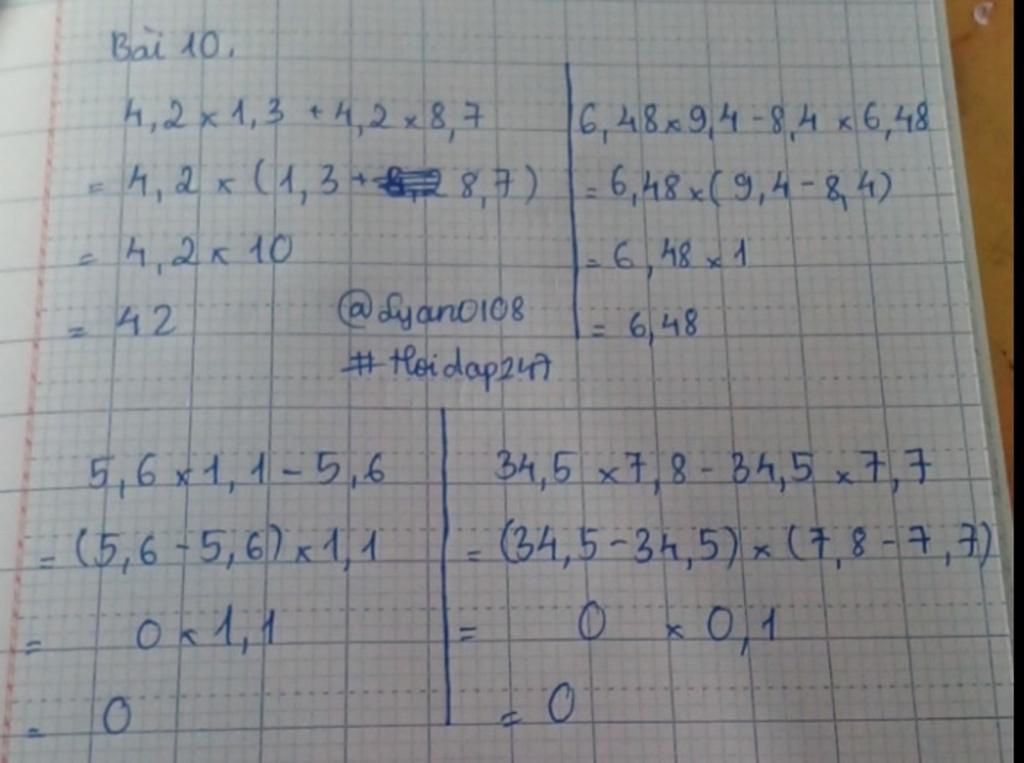 Bài 10.
4,2 × 1,3 + 4,2 × 8,7
= 4,2 × (1,3 + 8,7)
= 4,2 × 10
= 42
6,48 × 9,4 - 8,4 × 6,48
= 6,48 × (9,4 - 8,4)
= 6,48 × 1
= 6,48
@Lyan0108
#Hoidap247
5,6 × 1,1 - 5,6
= (5,6 - 5,6) × 1,1
= 0 × 1,1
= 0
34,5 × 7,8 - 34,5 × 7,7
= (34,5 - 34,5) × (7,8 - 7,7)
= 0 × 0,1
= 0